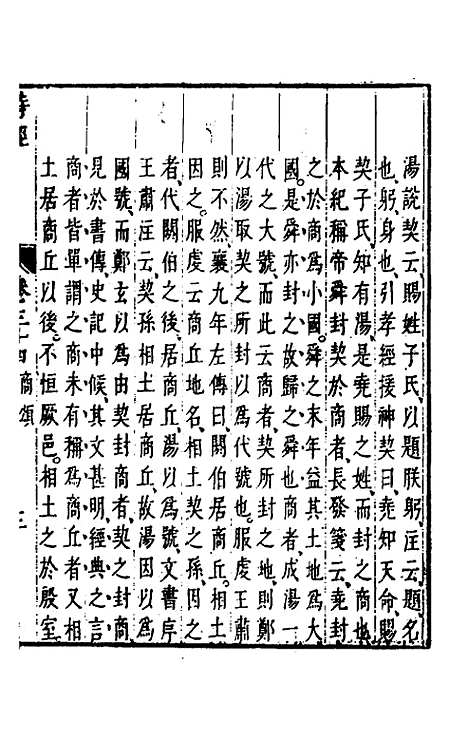 湯說契云賜姓子氏以題朕躬注云題名
也躬身也引孝經援神契曰堯知天命賜
契子氏知有湯是堯賜之姓而封之商也
本紀稱帝舜封契於商者長發箋云堯封
之於商為小國舜之末年益其土地為大
國是舜亦封之故歸之舜也商者成湯一
代之大號而此云商者契所封之地則鄭
以湯取契之所封以為代號也服虔王肅
則不然襄九年左傳曰閼伯居商丘相土
因之服虔云商丘地名相土契之孫因之
者代閼伯之後居商丘湯以為號文書序
王肅注云契孫相土居商丘故湯因以為
國號而鄭玄以為由契封商者契之封商
見於書傳史記中候其文甚明經典之言
商者皆單謂之商未有稱為商丘者又相
土居商丘以後不恒厥邑相土之於殷室
詩經
卷二十四商頌
三